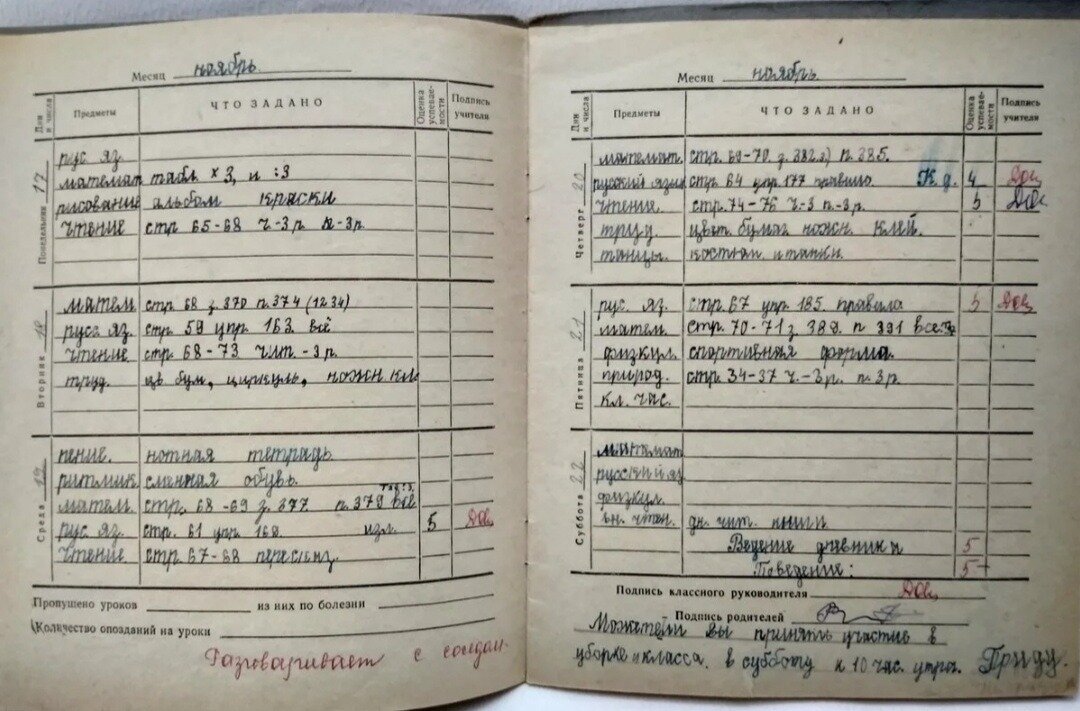 Месяц ноябрь
Дни и числа Предметы ЧТО ЗАДАНО Оценка успеваемости Подпись учителя
Понедельник 17
рус яз.
математ табл × 3, и :3
рисование альбом краски
чтение стр 65-68 ч-3р п-3р.
Вторник 18
матем стр 68 з.370 п.374 (1234)
русс яз. стр. 59 упр 163. всё
чтение. стр. 68-73 чит.-3р.
труд. цв бум, циркуль, ножн кл.
Среда 19
пение. нотная тетрадь
ритмик сменная обувь.
матем. стр. 68-69 з. 377 п.379 всё
рус яз. стр. 61 упр 169. изл. 5
чтение стр. 67-68 пересказ
Пропущено уроков из них по болезни
Количество опозданий на уроки
Разговаривает с
Месяц ноябрь.
Дни и числа Предметы ЧТО ЗАДАНО Оценка успевае-мости Подпись учителя
Четверг 20
математ. стр. 69-70 з. 382 п. 385.
русский язык стр 64 упр. 177 правило. К.д. 4
чтение. стр. 74-76 ч-3 п-3р. 5
труд. цвет. бумаг ножн. клей.
танцы. костюм
Пятница 21
рус. яз. стр. 67 упр. 185. правила 5
матем. стр. 70-71 з. 389. п 391
физкул. спортивная форма.
природ. стр. 34-37 ч.-3р. п. 3р.
кл. час.
Суббота 22
математ
русский яз.
физкул.
вн. чтен. дн. чит. книги
Ведение дневника 5
Поведение: 5
Подпись классного руководителя
Подпись родителей
Можете ли вы принять участие в
уборке класса. в субботу к 10 час. утра. Приду.